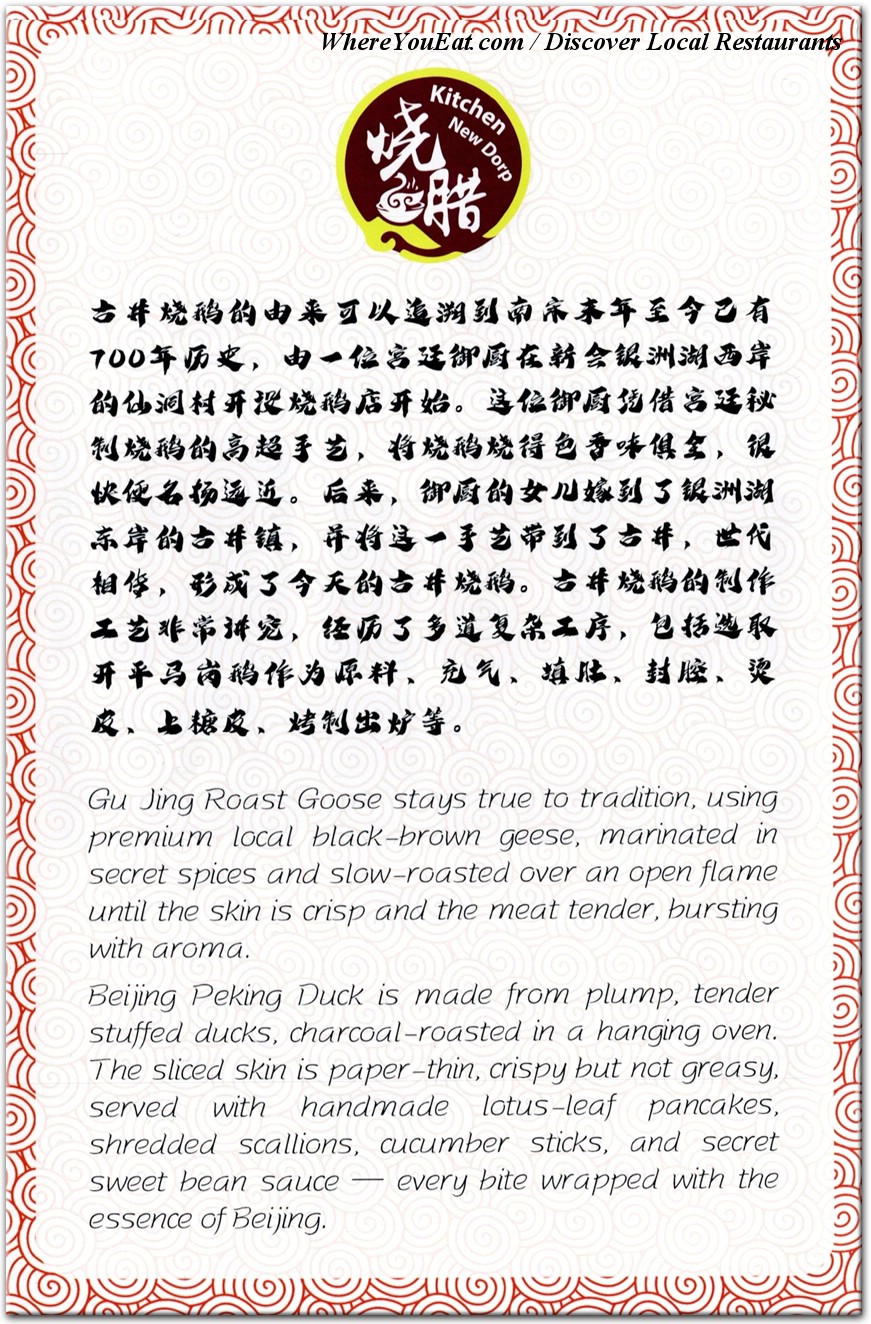 WhereYouEat.com / Discover Local Restaurants
Kitchen
New Dorp
烧
腊
古井烧鹅的由来可以追溯到南宋末年至今已有
700年历史，由一位宫廷御厨在新会银洲湖西岸
的仙洞村开设烧鹅店开始。这位御厨凭借宫廷秘
制烧鹅的高超手艺，将烧鹅烧得色香味俱全，很
快便名扬远近。后来，御厨的女儿嫁到了银洲湖
东岸的古井镇，并将这一手艺带到了古井，世代
相传，形成了今天的古井烧鹅。古井烧鹅的制作
工艺非常讲究，经历了多道复杂工序，包括选取
开平马岗鹅作为原料、充气、填肚、封腔、烫
皮、上糖皮、烤制出炉等。
Gu Jing Roast Goose stays true to tradition, using
premium local black-brown geese, marinated in
secret spices and slow-roasted over an open flame
until the skin is crisp and the meat tender, bursting
with aroma.
Beijing Peking Duck is made from plump, tender
stuffed ducks, charcoal-roasted in a hanging oven.
The sliced skin is paper-thin, crispy but not greasy,
served with handmade lotus-leaf pancakes,
shredded scallions, cucumber sticks, and secret
sweet bean sauce — every bite wrapped with the
essence of Beijing.